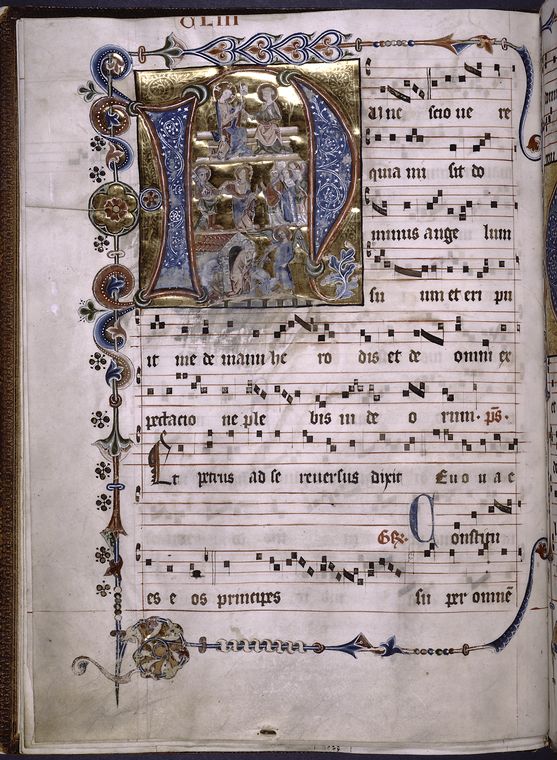 CLIII
N unc scio ue re
quia mi sit do
minus ange lum
su um et eri pu
it me de manu he ro dis et de omni ex
pectacio ne ple bis iu de o rum. ps.
Et petrus ad se reuersus dixit Euouae
Gr. Constitu
es e os principes su per omnē